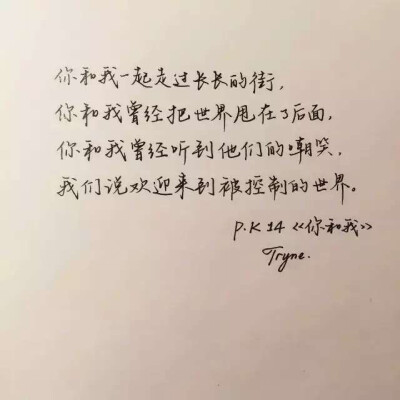 你和我一起走过长长的街,
你和我曾经把世界甩在了后面,
你和我曾经听到他们的嘲笑,
我们说欢迎来到被控制的世界。
P.K 14 《你和我》
Tryne.